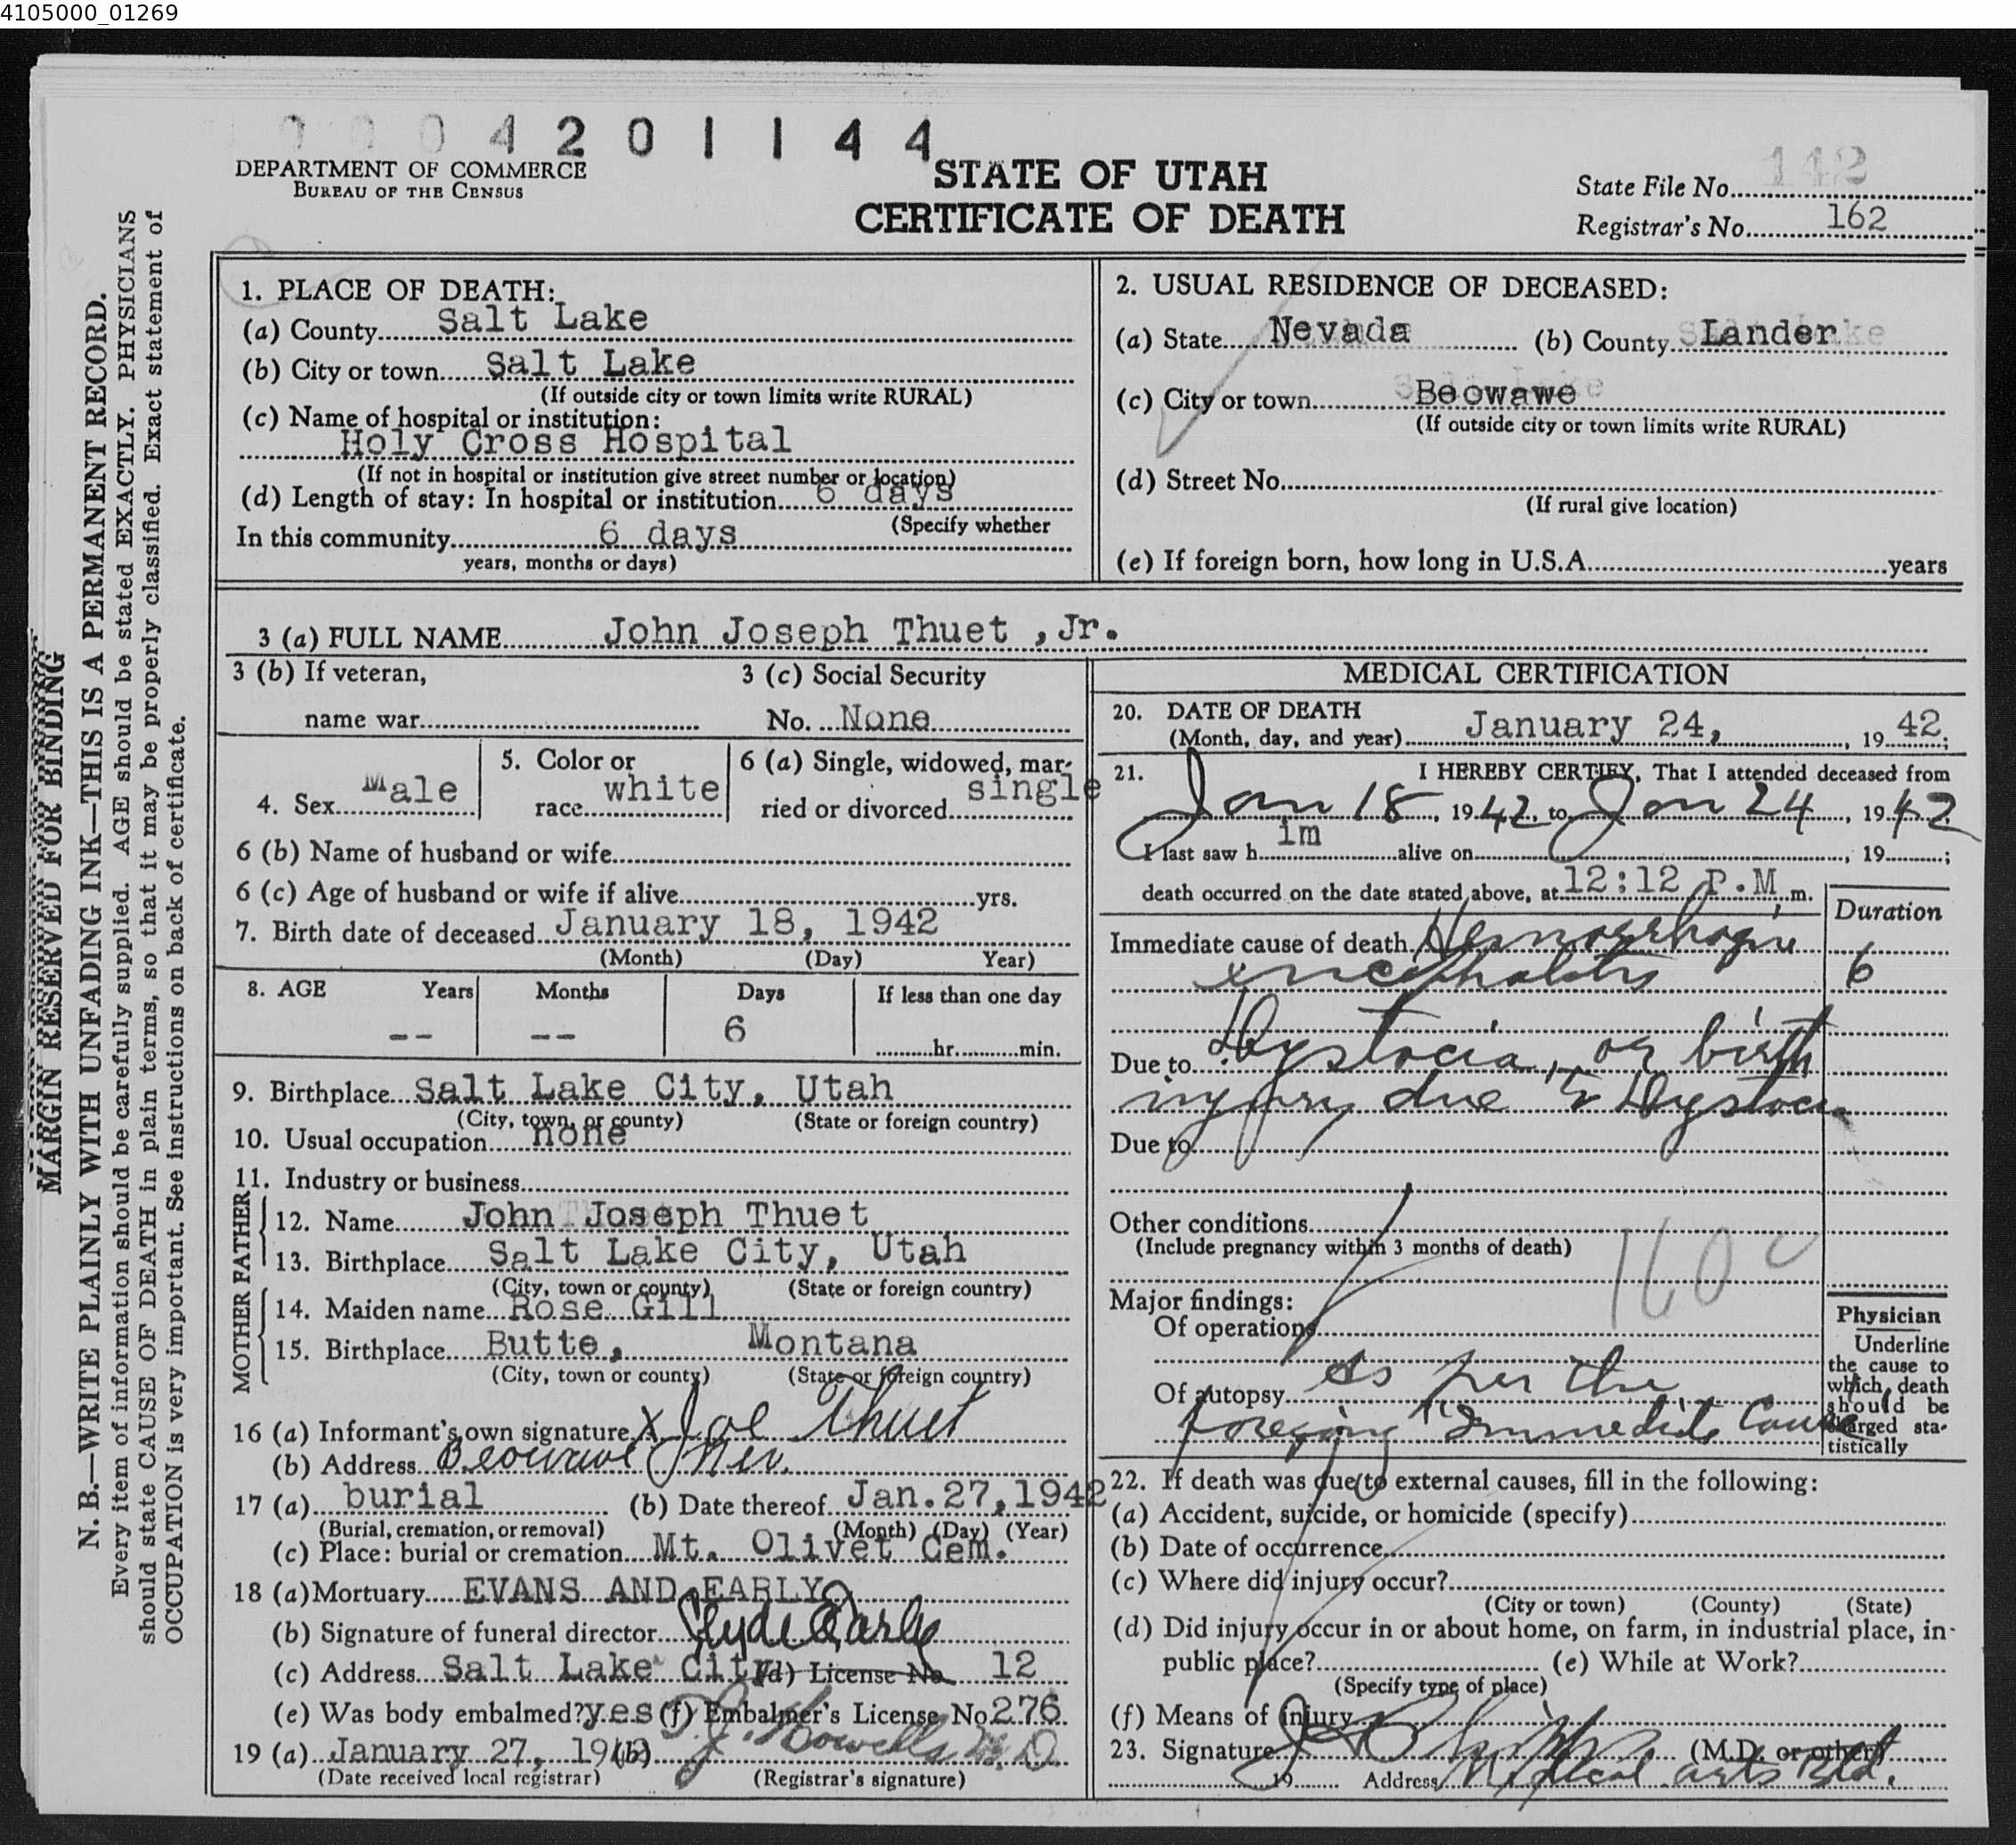 4105000_01269
0004201144
DEPARTMENT OF COMMERCE
BUREAU OF THE CENSUS
STATE OF UTAH
CERTIFICATE OF DEATH
State File No. 142
Registrar's No. 162
MARGIN RESERVED FOR BINDING
N. B.—WRITE PLAINLY WITH UNFADING INK—THIS IS A PERMANENT RECORD.
Every item of information should be carefully supplied. AGE should be stated EXACTLY. PHYSICIANS
should state CAUSE OF DEATH in plain terms, so that it may be properly classified. Exact statement of
OCCUPATION is very important. See instructions on back of certificate.
1. PLACE OF DEATH:
(a) County Salt Lake
(b) City or town Salt Lake
(If outside city or town limits write RURAL)
(c) Name of hospital or institution:
Holy Cross Hospital
(If not in hospital or institution give street number or location)
(d) Length of stay: In hospital or institution 6 days
(Specify whether
In this community 6 days
years, months or days)
2. USUAL RESIDENCE OF DECEASED:
(a) State Nevada (b) County Lander
(c) City or town Beowawe
(If outside city or town limits write RURAL)
(d) Street No.
(If rural give location)
(e) If foreign born, how long in U.S.A. years
3 (a) FULL NAME John Joseph Thuet ,Jr.
3 (b) If veteran, 3 (c) Social Security
name war No. None
4. Sex Male 5. Color or race white 6 (a) Single, widowed, mar-
ried or divorced single
6 (b) Name of husband or wife
6 (c) Age of husband or wife if alive yrs.
7. Birth date of deceased January 18, 1942
(Month) (Day) Year)
8. AGE Years Months Days If less than one day
-- -- 6 hr. min.
9. Birthplace Salt Lake City, Utah
(City, town, or county) (State or foreign country)
10. Usual occupation none
11. Industry or business
FATHER
12. Name John Joseph Thuet
13. Birthplace Salt Lake City, Utah
(City, town or county) (State or foreign country)
MOTHER
14. Maiden name Rose Gill
15. Birthplace Butte, Montana
(City, town or county) (State or foreign country)
16 (a) Informant's own signature X Joe Thuet
(b) Address Beowawe Nev.
17 (a) burial (b) Date thereof Jan.27,1942
(Burial, cremation, or removal) (Month) (Day) (Year)
(c) Place: burial or cremation Mt. Olivet Cem.
18 (a) Mortuary EVANS AND EARLY
(b) Signature of funeral director Clyde Early
(c) Address Salt Lake City (d) License No. 12
(e) Was body embalmed? yes (f) Embalmer's License No. 276
19 (a) January 27, 1942 (b) T. J. Howells M. D.
(Date received local registrar) (Registrar's signature)
MEDICAL CERTIFICATION
20. DATE OF DEATH
(Month, day, and year) January 24, 19 42;
21. I HEREBY CERTIFY, That I attended deceased from
Jan 18, 1942, to Jan 24, 1942
I last saw h im alive on , 19 ;
death occurred on the date stated above, at 12:12 P.M. m.
Duration
Immediate cause of death Hemorrhagic
encephalitis 6
Due to Dystocia, or birth
injury due to Dystocia
Due to
Other conditions
(Include pregnancy within 3 months of death)
160 c
Major findings:
Of operations
Of autopsy As per the
foregoing "Immediate Cause
Physician
Underline
the cause to
which death
should be
charged sta-
tistically
22. If death was due to external causes, fill in the following:
(a) Accident, suicide, or homicide (specify)
(b) Date of occurrence
(c) Where did injury occur?
(City or town) (County) (State)
(d) Did injury occur in or about home, on farm, in industrial place, in
public place? (e) While at Work?
(Specify type of place)
(f) Means of injury
23. Signature (M.D. or other)
19 Address Medical Arts Bld.